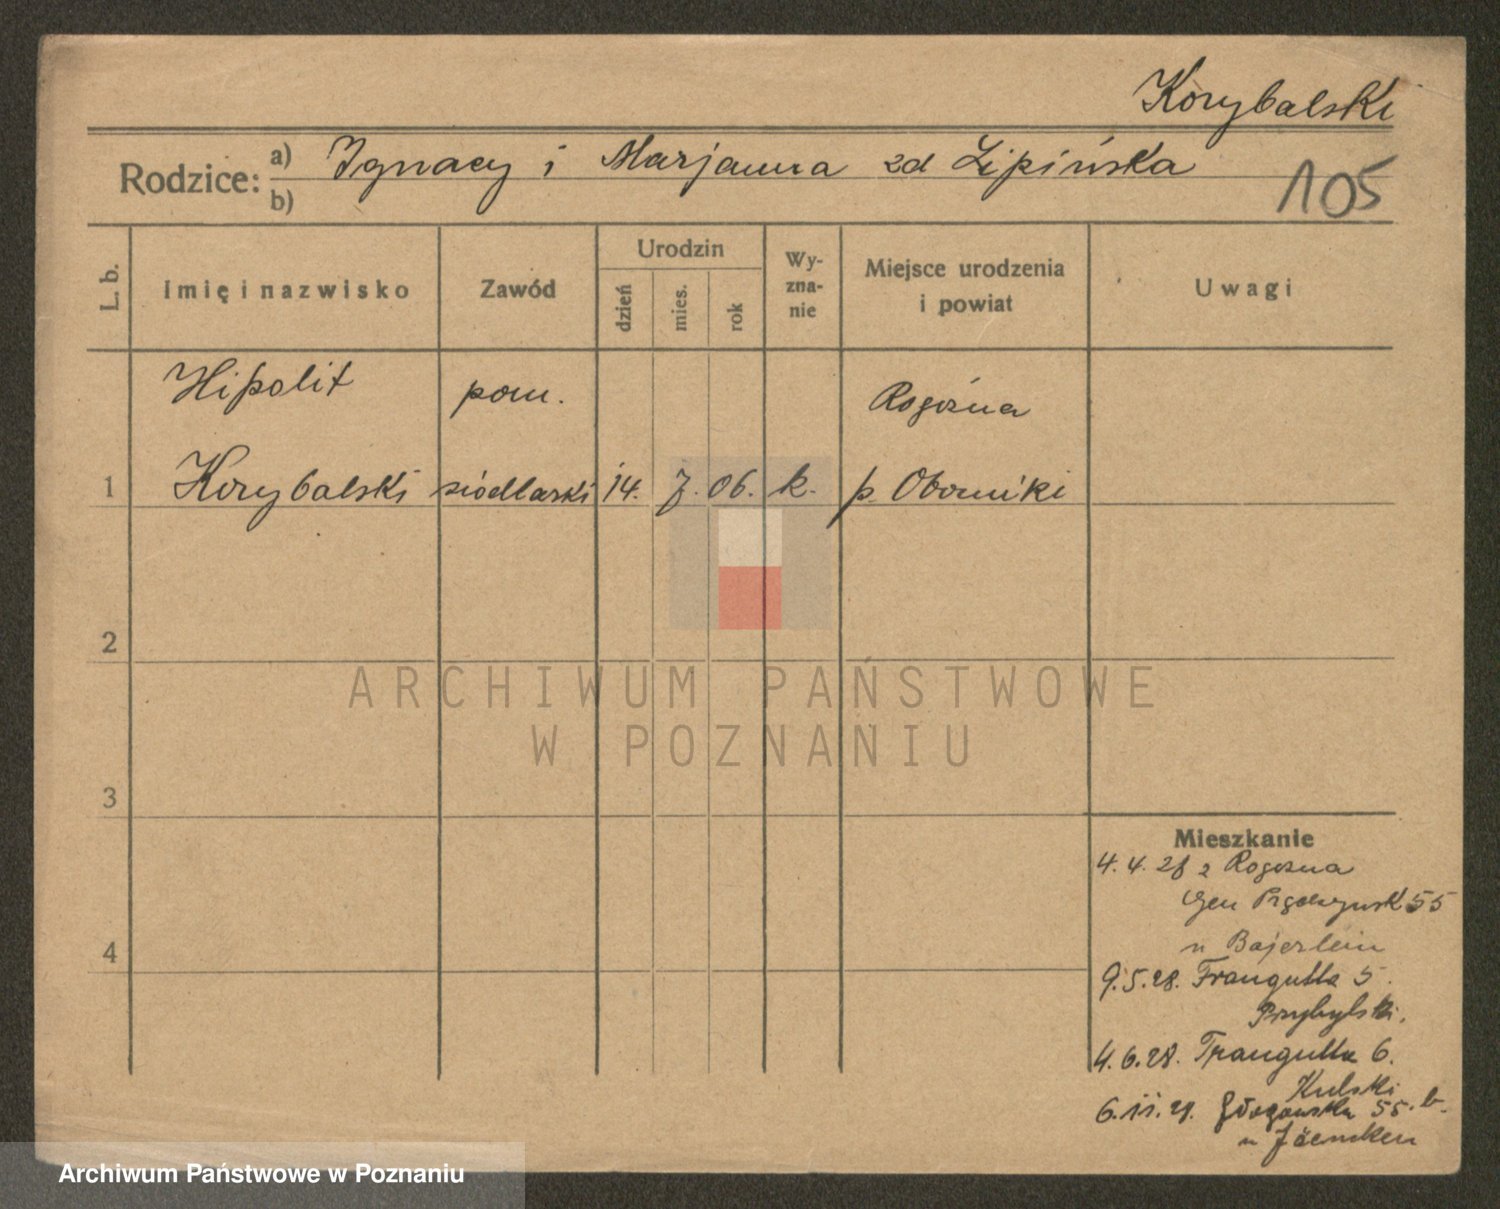 Korybalski
Rodzice: a) Ignacy i Marjanna zd Lipińska
b)
105
L. b.
imię i nazwisko
Zawód
Urodzin
dzień
mies.
rok
Wy-
zna-
nie
Miejsce urodzenia
i powiat
Uwagi
Hipolit pom. Rogoźna
1 Korybalski siodlarski 14. 7. 06. k. p. Oborniki
2
3
4
ARCHIWUM PAŃSTWOWE
W POZNANIU
Mieszkanie
4. 4. 28 z Rogozna
Gen 55
u Bajerlein
9.5.28. Traugutta 5.
Przybylski.
4.6.28. Traugutta 6.
Kulski
6.11.29. Głogowska 55. b.
u
Archiwum Państwowe w Poznaniu